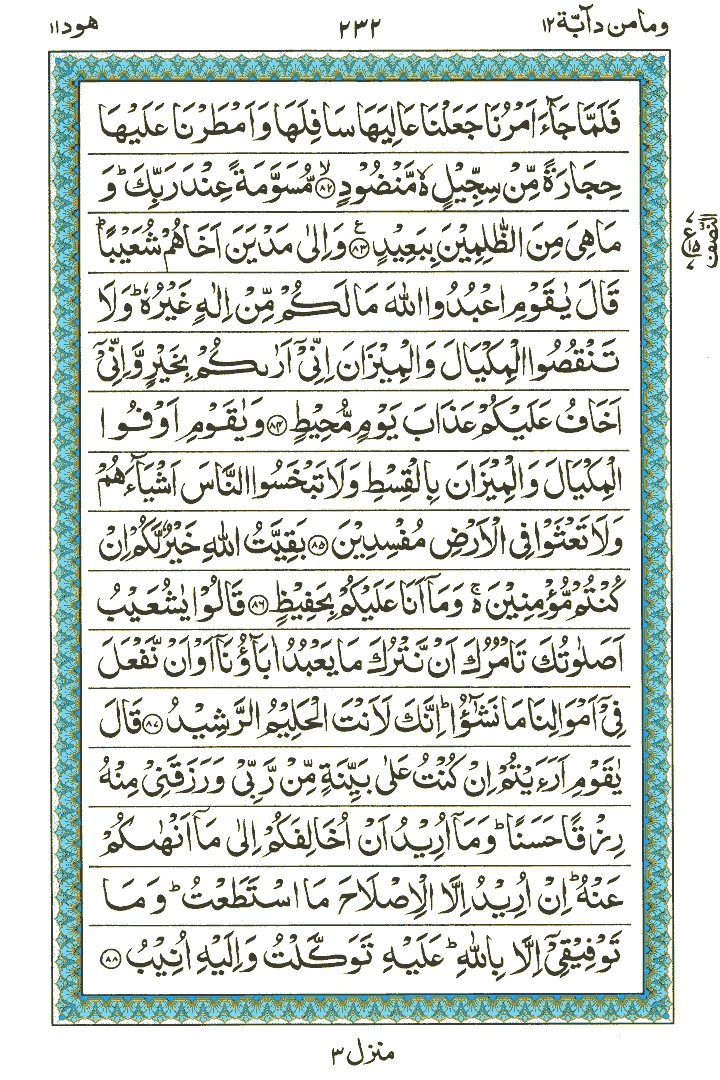 وما من دآبّة ١٢
٢٣٢
هود ١١
فَلَمَّا جَآءَ اَمْرُنَا جَعَلْنَا عَالِيَهَا سَافِلَهَا وَاَمْطَرْنَا عَلَيْهَا
حِجَارَةً مِّنْ سِجِّيْلٍ ۙ۬ مَّنْضُوْدٍ ۙ‏﴿۸۲﴾ مُّسَوَّمَةً عِنْدَ رَبِّكَ ؕ وَ
مَا هِىَ مِنَ الظّٰلِمِيْنَ بِبَعِيْدٍ ﴿۸۳﴾ ع وَاِلٰى مَدْيَنَ اَخَاهُمْ شُعَيْبًا ؕ
النصف
قَالَ يٰقَوْمِ اعْبُدُوا اللّٰهَ مَا لَكُمْ مِّنْ اِلٰهٍ غَيْرُهٗ ؕ وَلَا
تَنْقُصُوا الْمِكْيَالَ وَالْمِيْزَانَ اِنِّىْۤ اَرٰٮكُمْ بِخَيْرٍ وَّاِنِّىْۤ
اَخَافُ عَلَيْكُمْ عَذَابَ يَوْمٍ مُّحِيْطٍ ﴿۸۴﴾ وَيٰقَوْمِ اَوْفُوا
الْمِكْيَالَ وَالْمِيْزَانَ بِالْقِسْطِ وَلَا تَبْخَسُوا النَّاسَ اَشْيَآءَهُمْ
وَلَا تَعْثَوْا فِى الْاَرْضِ مُفْسِدِيْنَ ﴿۸۵﴾ بَقِيَّتُ اللّٰهِ خَيْرٌ لَّكُمْ اِنْ
كُنْتُمْ مُّؤْمِنِيْنَ ۬ۚ وَمَاۤ اَنَا عَلَيْكُمْ بِحَفِيْظٍ ﴿۸۶﴾ قَالُوْا يٰشُعَيْبُ
اَصَلٰوتُكَ تَاْمُرُكَ اَنْ نَّتْرُكَ مَا يَعْبُدُ اٰبَآؤُنَاۤ اَوْ اَنْ نَّفْعَلَ
فِىْۤ اَمْوَالِنَا مَا نَشٰٓؤُا ؕ اِنَّكَ لَاَنْتَ الْحَلِيْمُ الرَّشِيْدُ ﴿۸۷﴾ قَالَ
يٰقَوْمِ اَرَءَيْتُمْ اِنْ كُنْتُ عَلٰى بَيِّنَةٍ مِّنْ رَّبِّىْ وَرَزَقَنِىْ مِنْهُ
رِزْقًا حَسَنًا ؕ وَمَاۤ اُرِيْدُ اَنْ اُخَالِفَكُمْ اِلٰى مَاۤ اَنْهٰٮكُمْ
عَنْهُ ؕ اِنْ اُرِيْدُ اِلَّا الْاِصْلَاحَ مَا اسْتَطَعْتُ ؕ وَمَا
تَوْفِيْقِىْۤ اِلَّا بِاللّٰهِ ؕ عَلَيْهِ تَوَكَّلْتُ وَاِلَيْهِ اُنِيْبُ ﴿۸۸﴾
منزل ٣